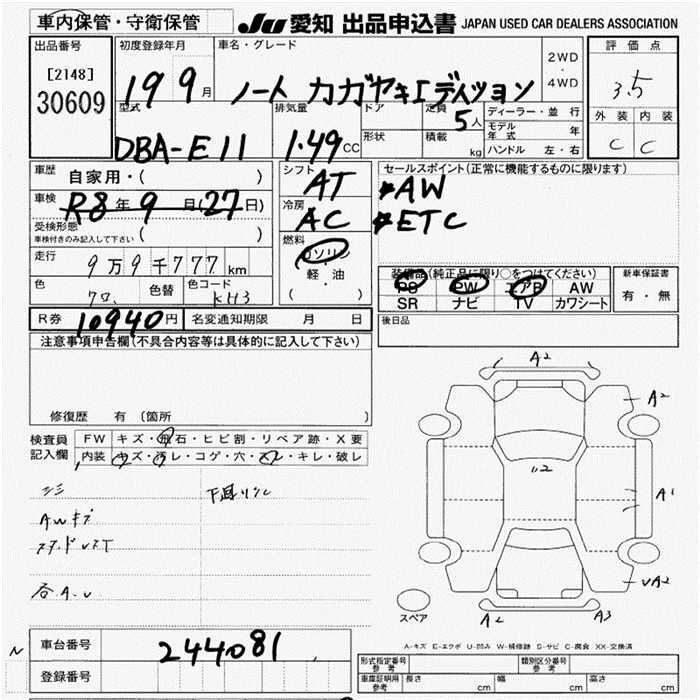 車内保管・守衛保管 JU 愛知 出品申込書 JAPAN USED CAR DEALERS ASSOCIATION
出品番号 [2148] 30609
初度登録年月 19 9 月
車名・グレード ノート カガヤキエディション
2WD ・ 4WD
評価点 3.5
外装 内装
C C
型式 DBA-E11
排気量 1.49 CC
ドア 定員 5 人
形状 積載 kg
ディーラー・並行
モデル年式 年
ハンドル 左・右
車歴 自家用・( )
車検 R8年 9 月(27日)
受検形態 ( )
車検付きのみ記入して下さい
走行 9万9千777 km
色 クロ 色替 色コード KH3
シフト AT
冷房 AC
燃料 ガソリン ・ 軽油 ( )
セールスポイント(正常に機能するものに限ります)
*AW
*ETC
装備品(純正品に限り○をつけてください)
PS PW エアB AW
SR ナビ TV カワシート
新車保証書 有・無
R券 10940円 名変通知期限 月 日
後日品
注意事項申告欄(不具合内容等は具体的に記入して下さい)
修復歴 有 (箇所 )
検査員記入欄
FW キズ・飛石・ヒビ割・リペア跡・X要
内装 キズ・汚レ・コゲ・穴・スレ・キレ・破レ
AWキズ
各A.U
A2
A2
A1
A2
A2 A3
スペア
A-キズ E-エクボ U-凹み W-補修跡 S-サビ C-腐食 XX-交換済
N
車台番号 244081
登録番号
形式指定番号 参考 類別区分番号 参考
車庫証明用 参考 長さ cm 幅 cm 高さ cm